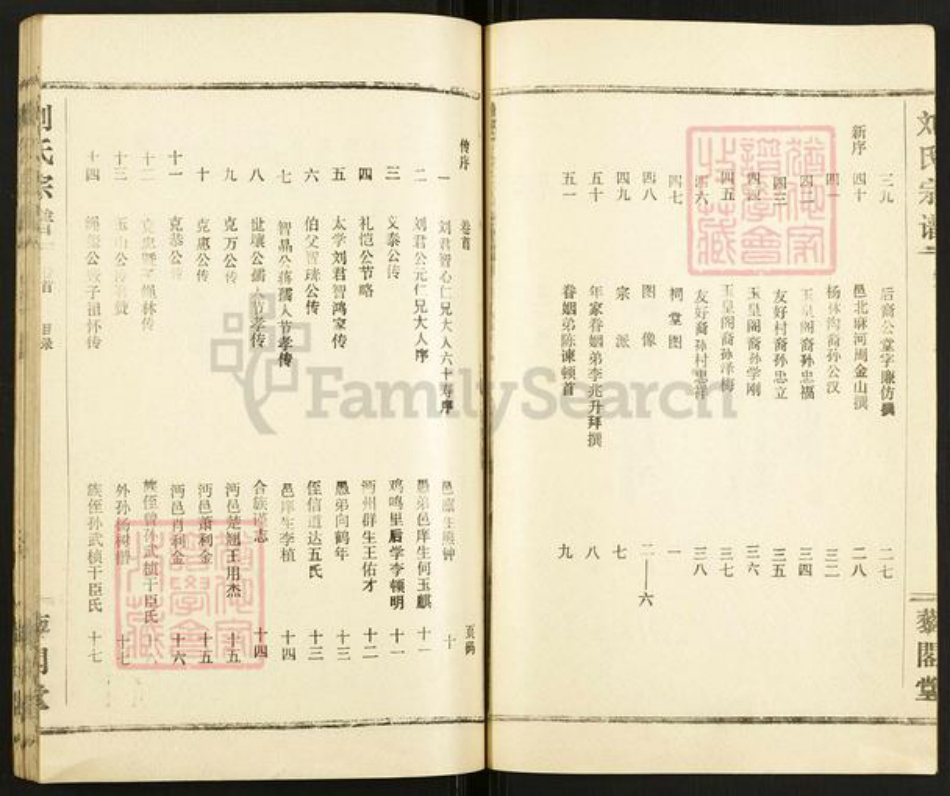 刘氏宗谱
藜閣堂
三九 后裔公堂字廉仿撰 二七
新序
四十 邑北麻河周金山撰 二八
四一 杨林沟裔孙公汉 三二
四二 玉皇阁裔孙忠福 三四
四三 友好村裔孙忠立 三五
四四 玉皇阁裔孙学刚 三六
四五 玉皇阁裔孙泽梅 三七
四六 友好裔孙村忠洋 三八
四七 祠堂图 一
四八 图像 二——六
四九 宗派 七
五十 年家眷姻弟李兆升拜撰 八
五一 眷姻弟陈谏顿首 九
传序 卷首 页码
一 刘君智心仁兄大人六十寿序 邑廪生 钟 十
二 刘君公元仁兄大人序 愚弟邑庠生何玉麒 十一
三 义泰公传 鸡鸣里后学李顿明 十一
四 礼恺公节略 沔州群生王佑才 十二
五 太学刘君智鸿家传 愚弟向鹤年 十三
六 伯父智珖公传 侄信道达五氏 十三
七 智晶公蒋孺人节孝传 邑庠生李植 十四
八 世壤公孺人节孝传 合族谨志 十四
九 克万公传 沔邑楚翘王用杰 十五
十 克惠公传 沔邑萧利金 十五
十一 克恭公传 沔邑肖利金 十六
十二 林传 族侄曾孙武桢干臣氏
十三 玉山公 赞 外孙杨树 十七
十四 公 子祖怀传 族侄孙武桢干臣氏 十七
刘氏宗谱 卷首 目录